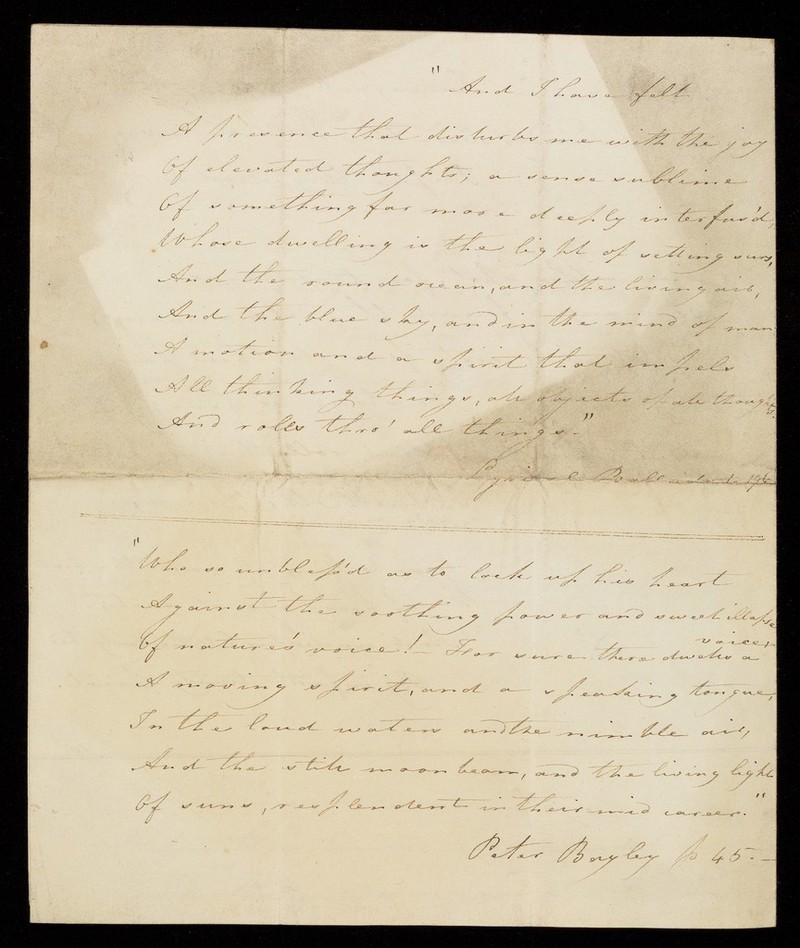 "And I have felt
A presence that disturbs me with the joy
Of elevated thoughts; a sense sublime
Of something far more deeply interfus'd,
Whose dwelling is the light of setting suns,
And the round ocean, and the living air,
And the blue sky, and in the mind of man
A motion and a spirit that impels
All thinking things, all objects of all thoughts.
And rolls thro' all things."
Lyrical Ballads
"Who so unbless'd as to lock up his heart
Against the soothing power and sweet illapse
Of nature's voice! For sure there dwells a voice,
A moving spirit, and a speaking tongue,
In the loud waters and the nimble air,
And the still moon beam, and the living light
Of suns, resplendent in their mid career."
Peter Bayley p 45.—